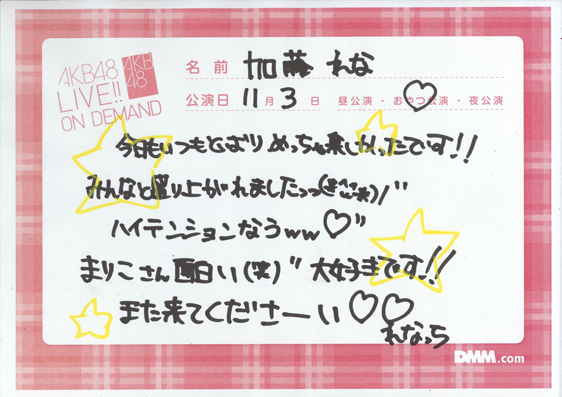 AKB48
LIVE!!
ON DEMAND
AKB
48
名前 加藤れな
公演日 11月3日 昼公演・おやつ公演・夜公演
今日もいつもどおりめっちゃ楽しかったです!!
みんなと盛り上がれましたっっ
ハイテンションなうww♡"
まりこさん面白い(笑)" 大好きです!!
また来てくださーい♡♡
れなっち
DMM.com